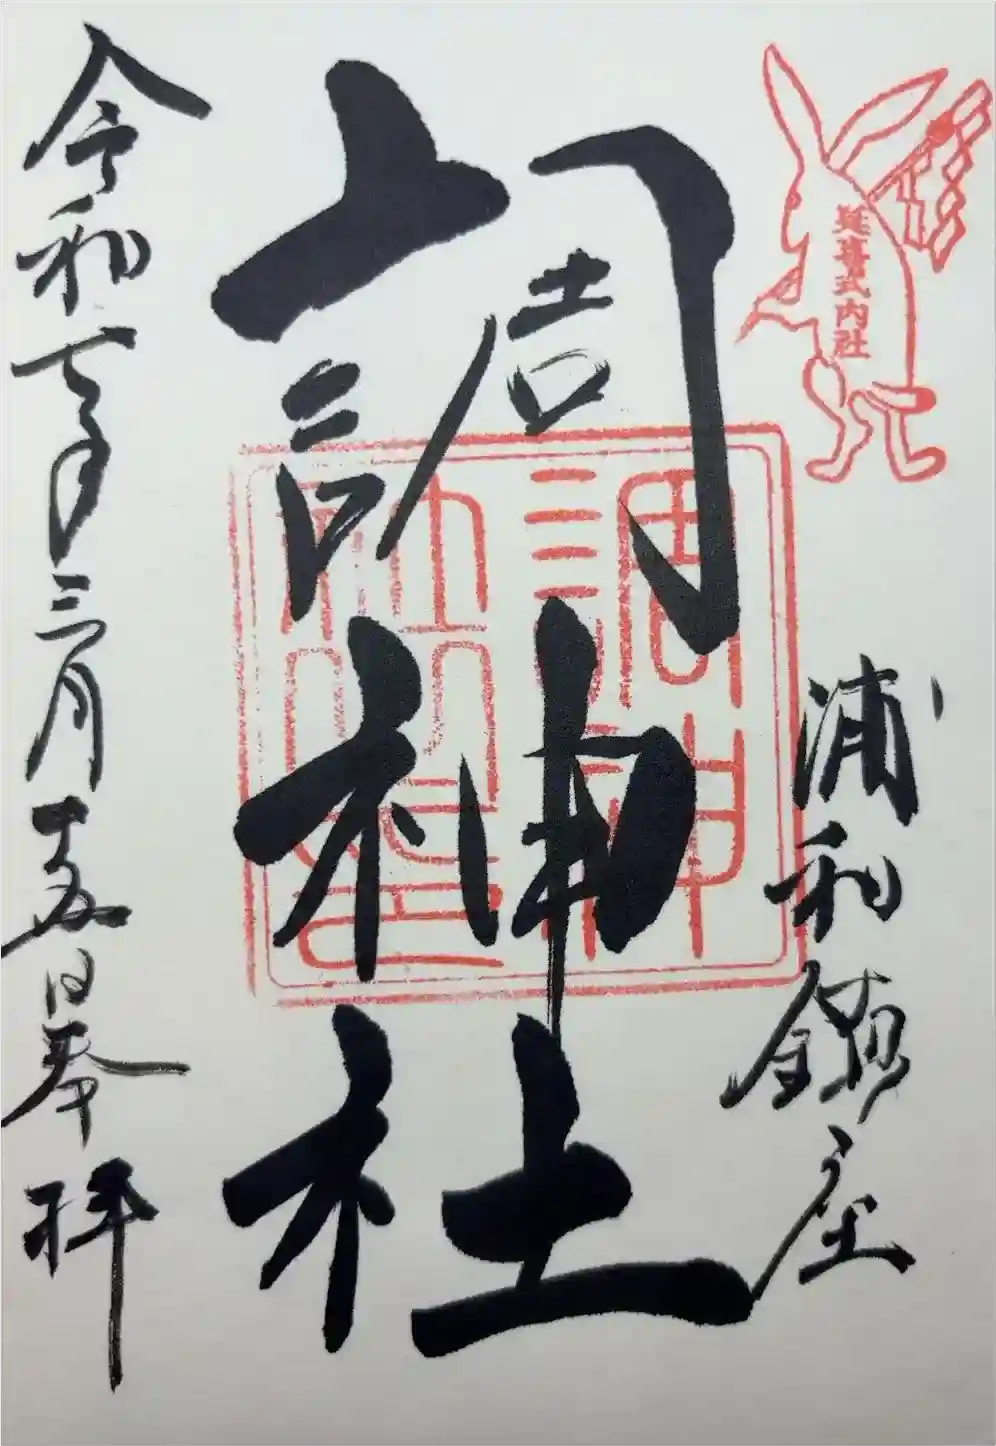 延喜式内社
浦和鎮座
調神社
令和七年三月十五日奉拝
調神